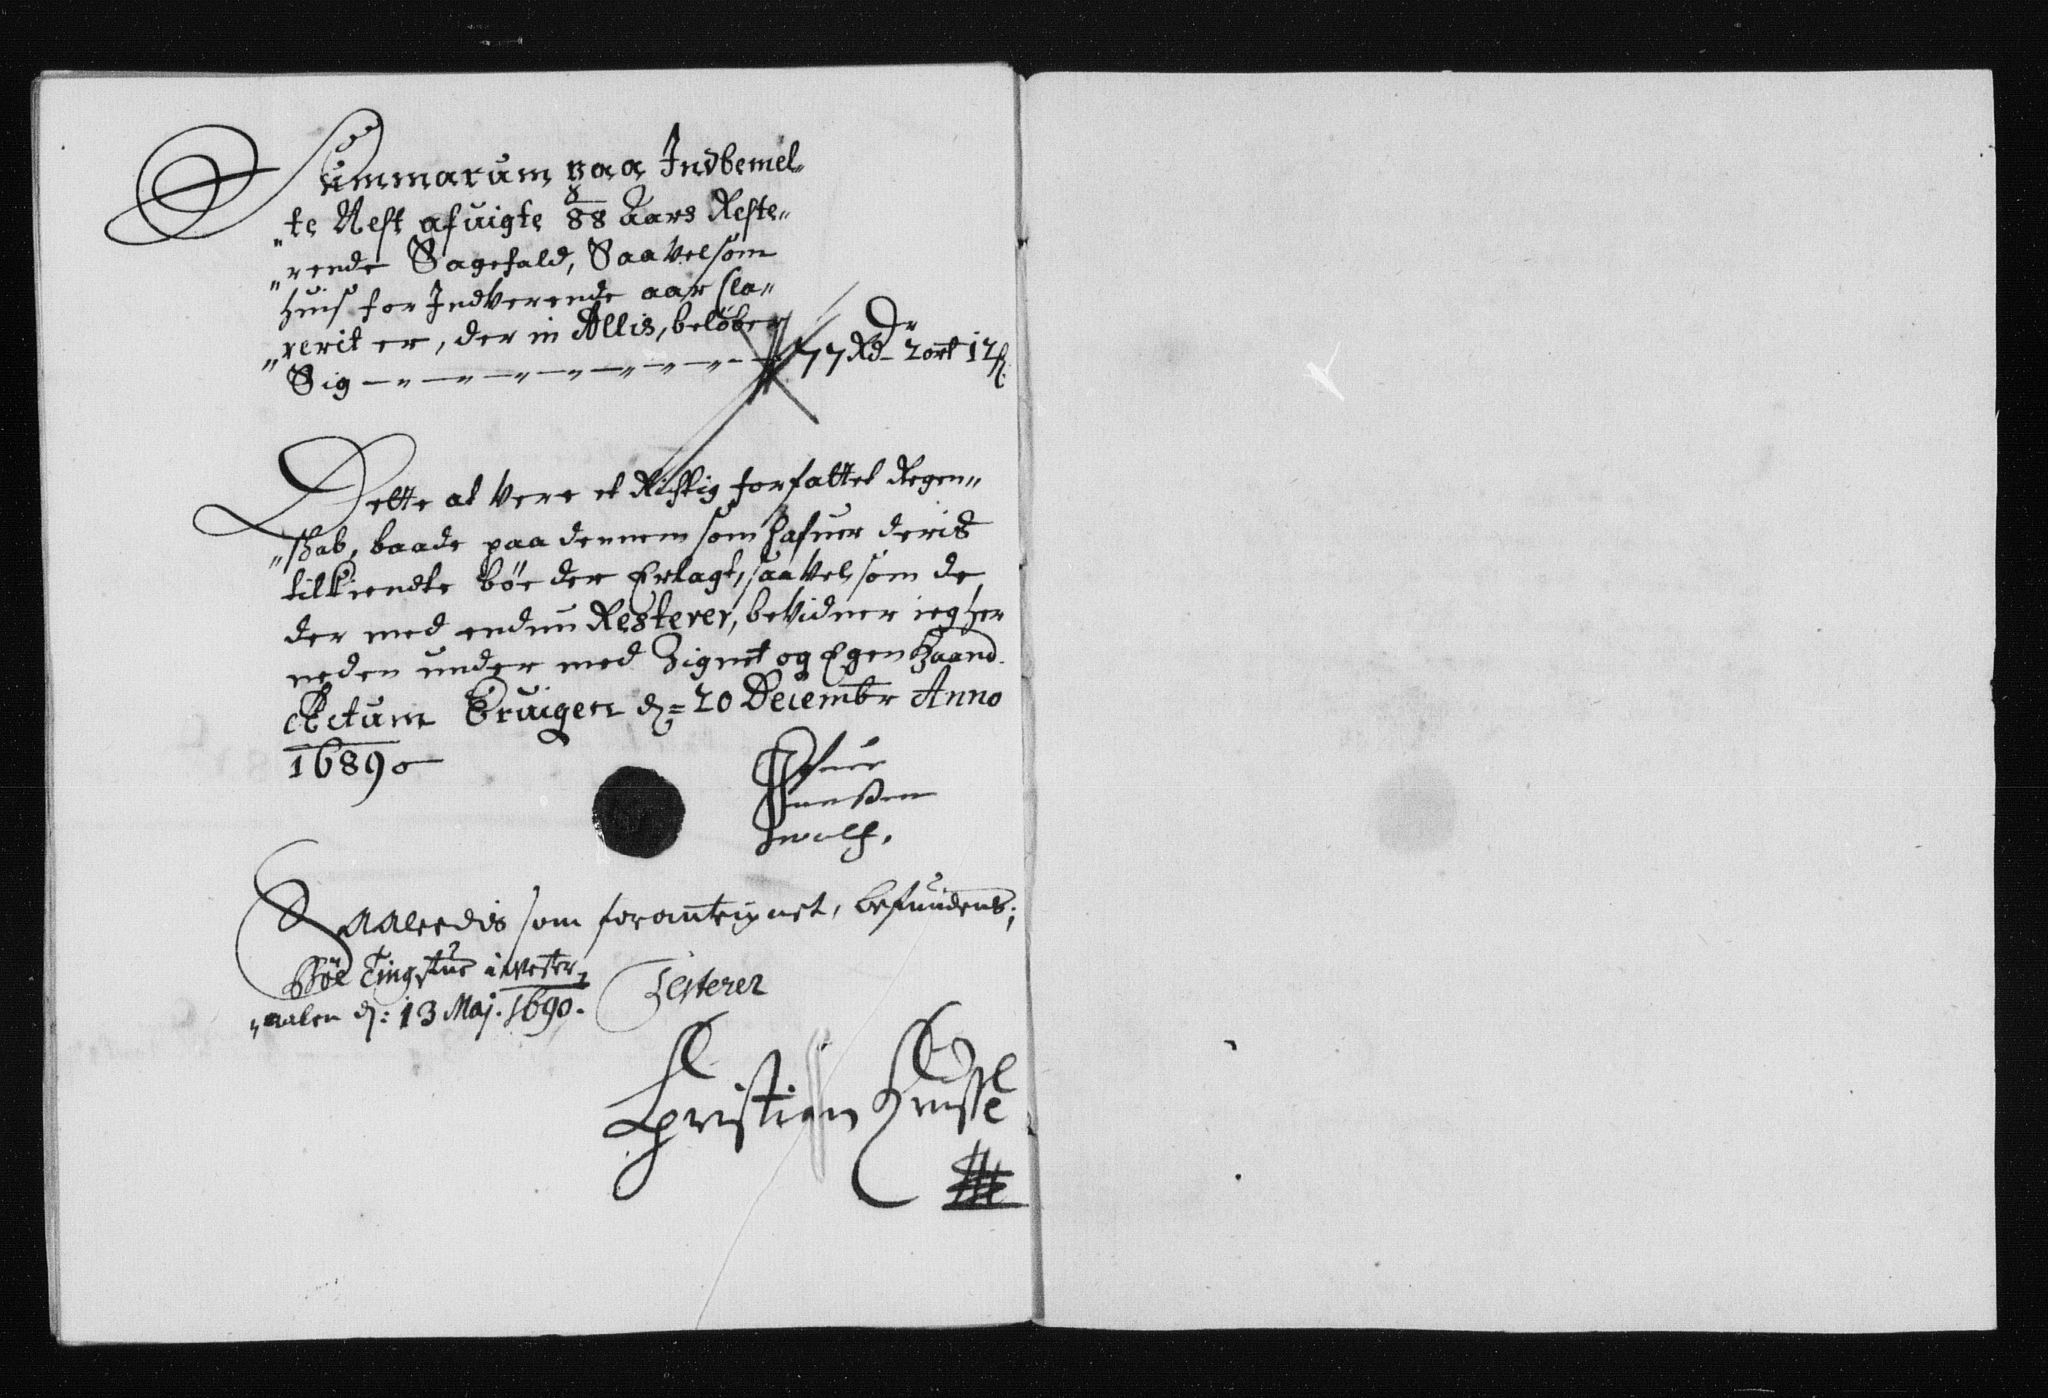 Summarum paa Indbemel-
"te Rest afuigte 88 Aars Reste-
"rende Sagefald, Saavelsom
huis for Indverende aar Cla-
"rerit er, der in Allis, beløber
Sig 77 Rd 2 ort 12 ß.
Dette at vere et Richtig forfattet Regen-
"skab, baade paa dennem som hafuer deris
tilkiendte bøeder Erlagt, saavel som de
der med endnu Resterer, bevidner ieg her
neden under med Zignet og Egen Haand.
Actum d= 20 Decembr Anno
1689
Saaledis som forantegnet, befundens;
Bøe Tingstue i Wester
"aalen d: 13 Maj. 1690. Testerer
Christian